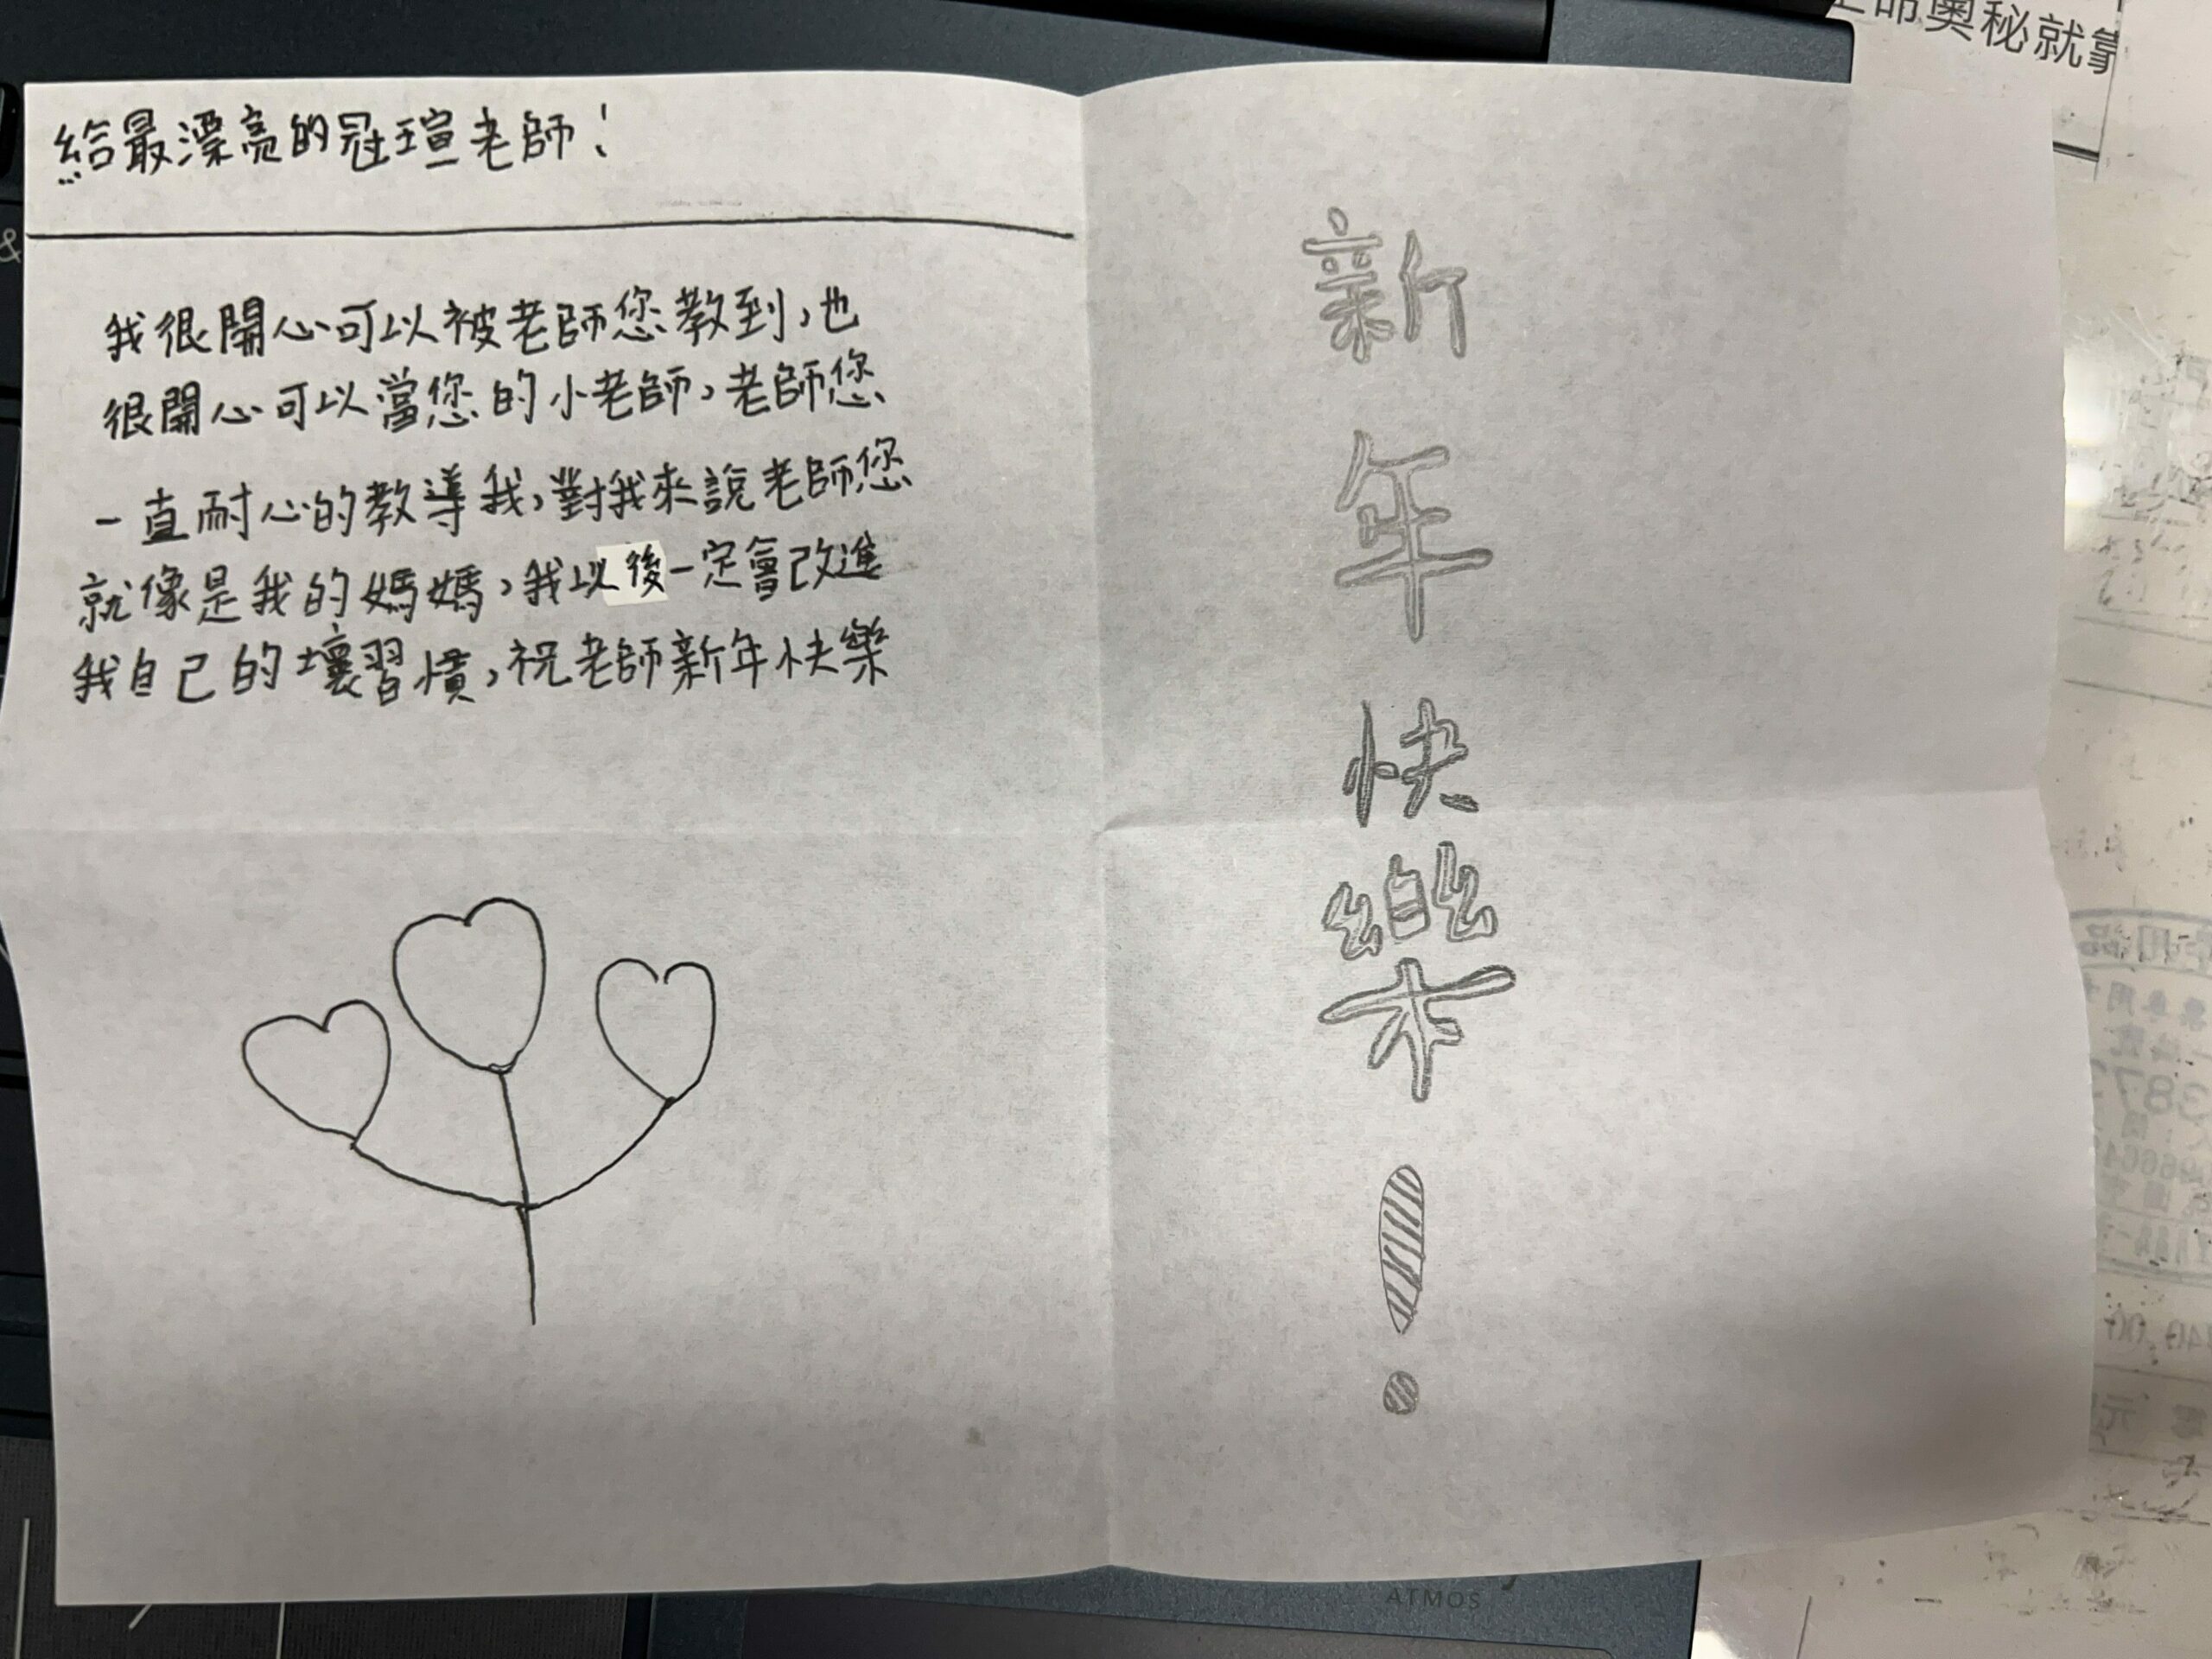 給最漂亮的冠瑄老師!
我很開心可以被老師您教到,也
很開心可以當您的小老師,老師您
一直耐心的教導我,對我來說老師您
就像是我的媽媽,我以後一定會改進
我自己的壞習慣,祝老師新年快樂
新
年
快
樂
!
命奧秘就靠
&
ATMOS